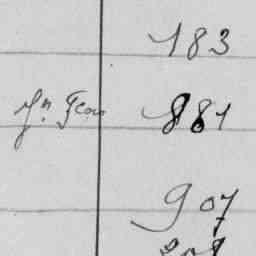 183
Jn Geo 881
907